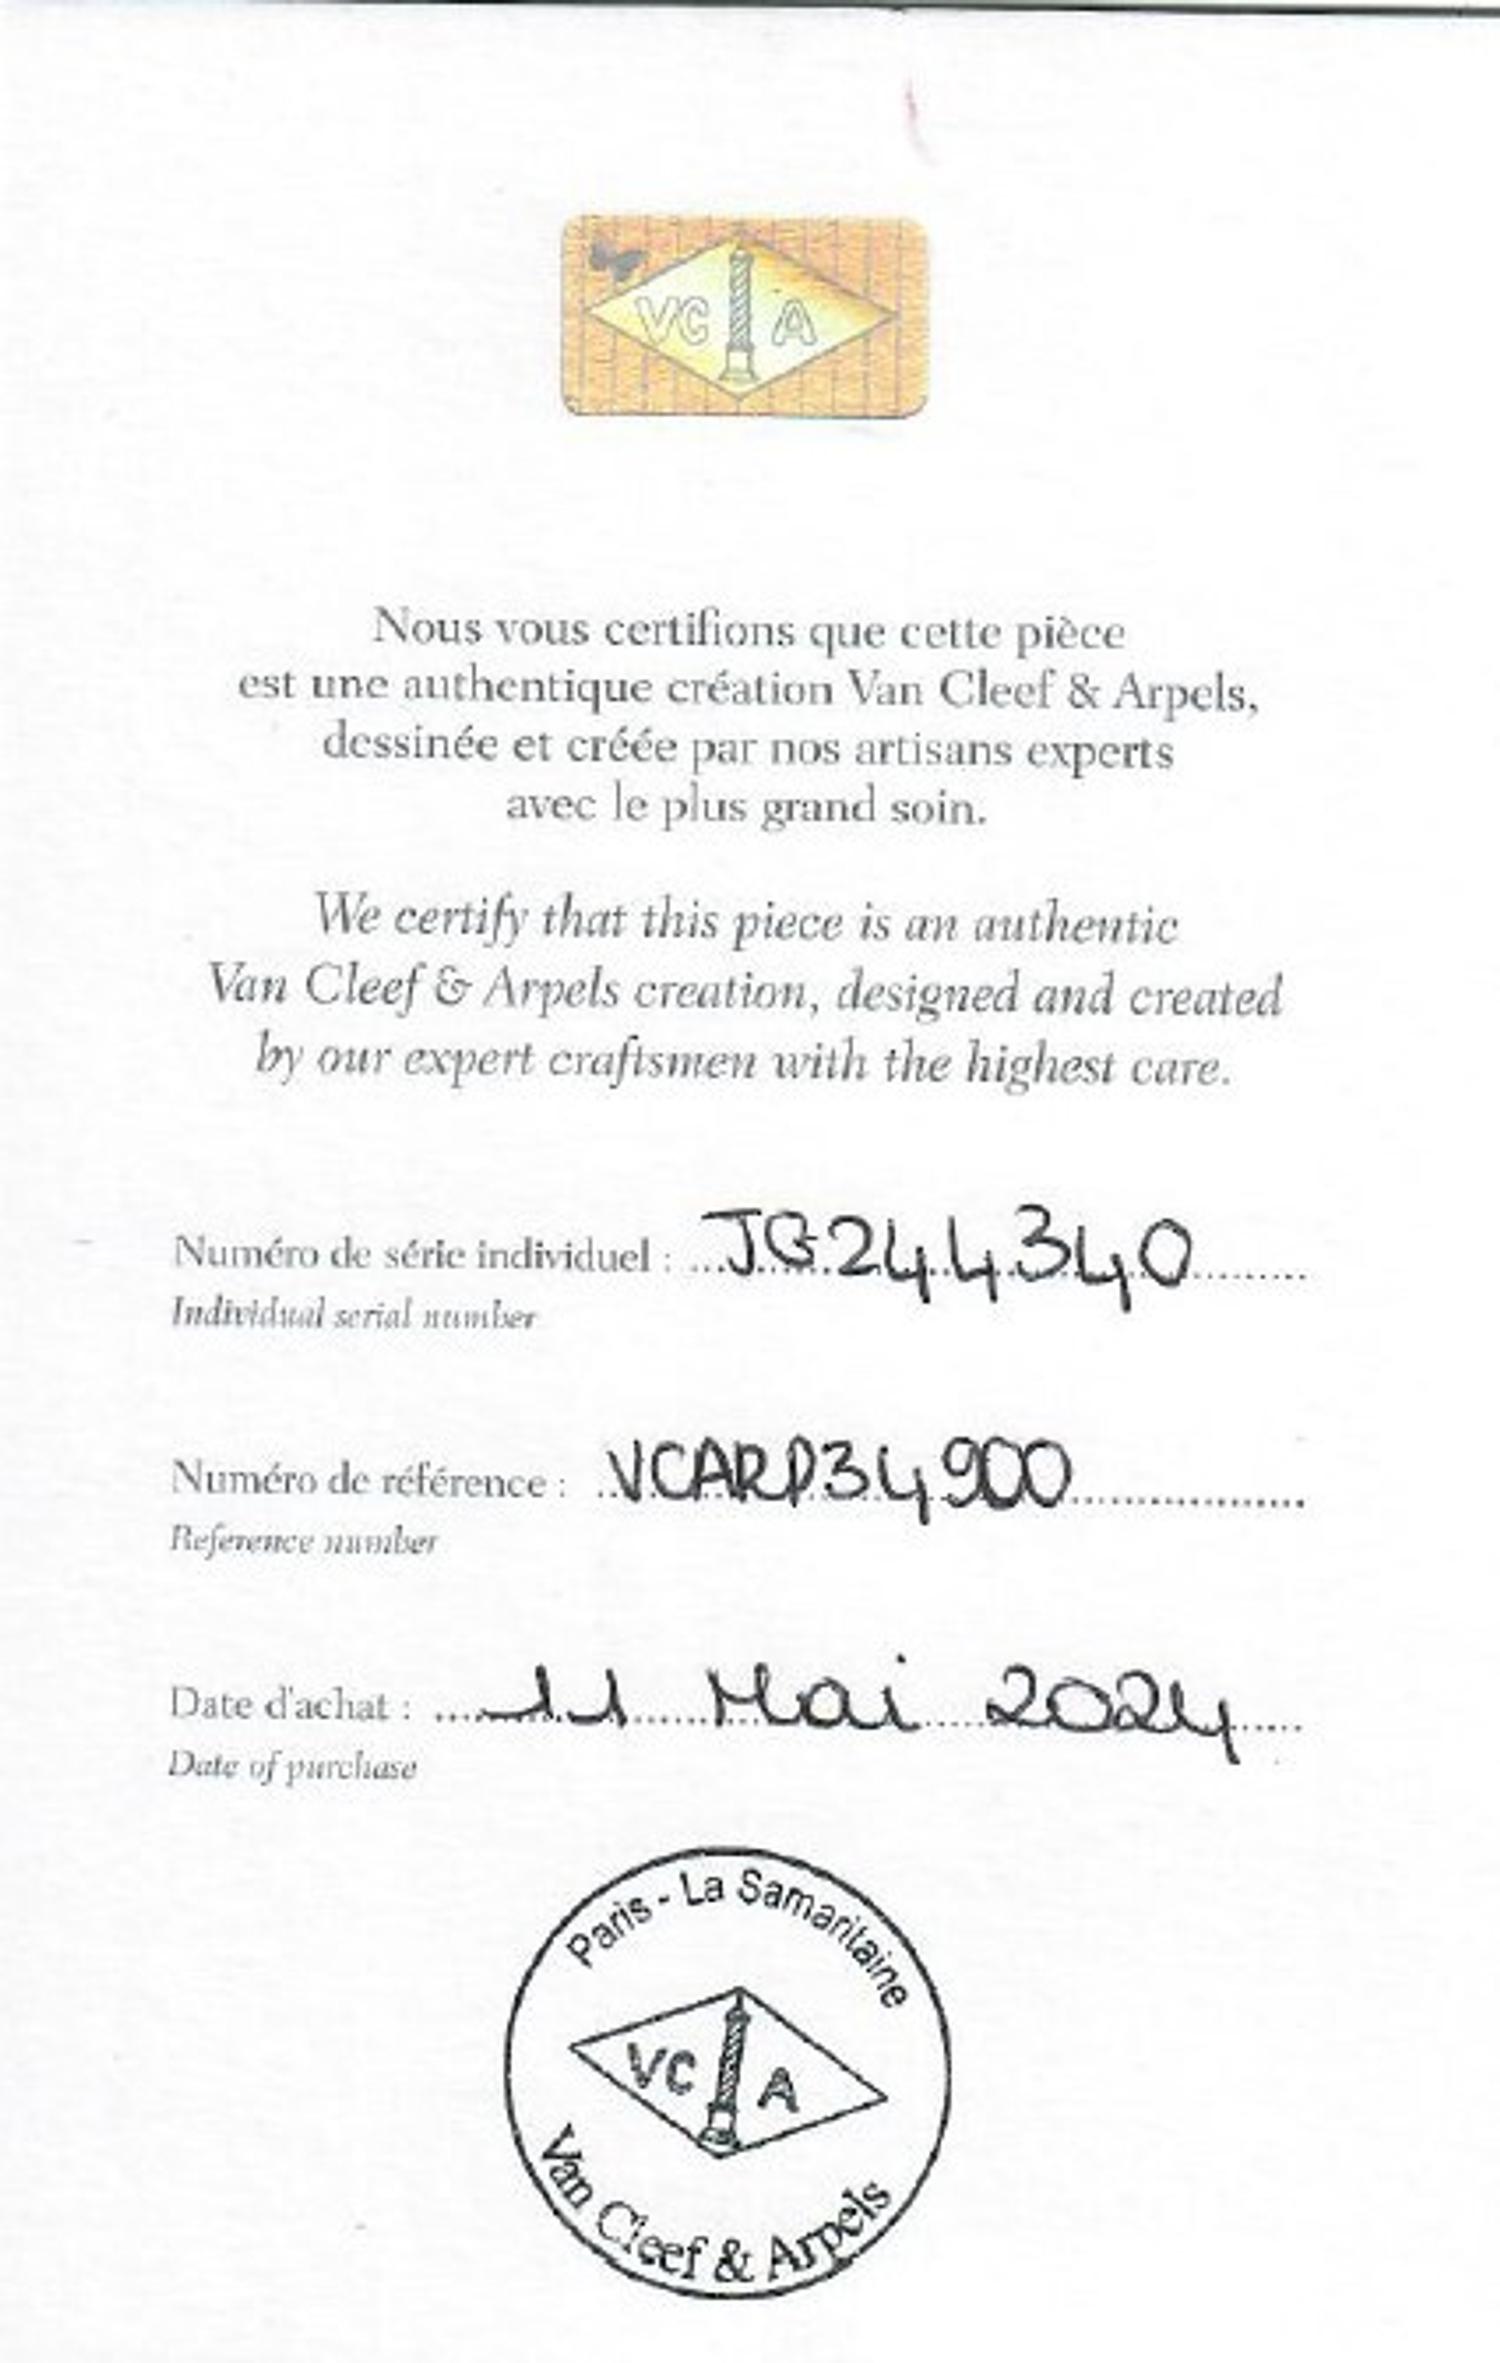 VC A
Nous vous certifions que cette pièce
est une authentique création Van Cleef & Arpels,
dessinée et créée par nos artisans experts
avec le plus grand soin.
We certify that this piece is an authentic
Van Cleef & Arpels creation, designed and created
by our expert craftsmen with the highest care.
Numéro de série individuel : JG244340
Individual serial number
Numéro de référence : VCARP34900
Reference number
Date d'achat : 11 Mai 2024
Date of purchase
Paris - La Samaritaine
VC A
Van Cleef & Arpels